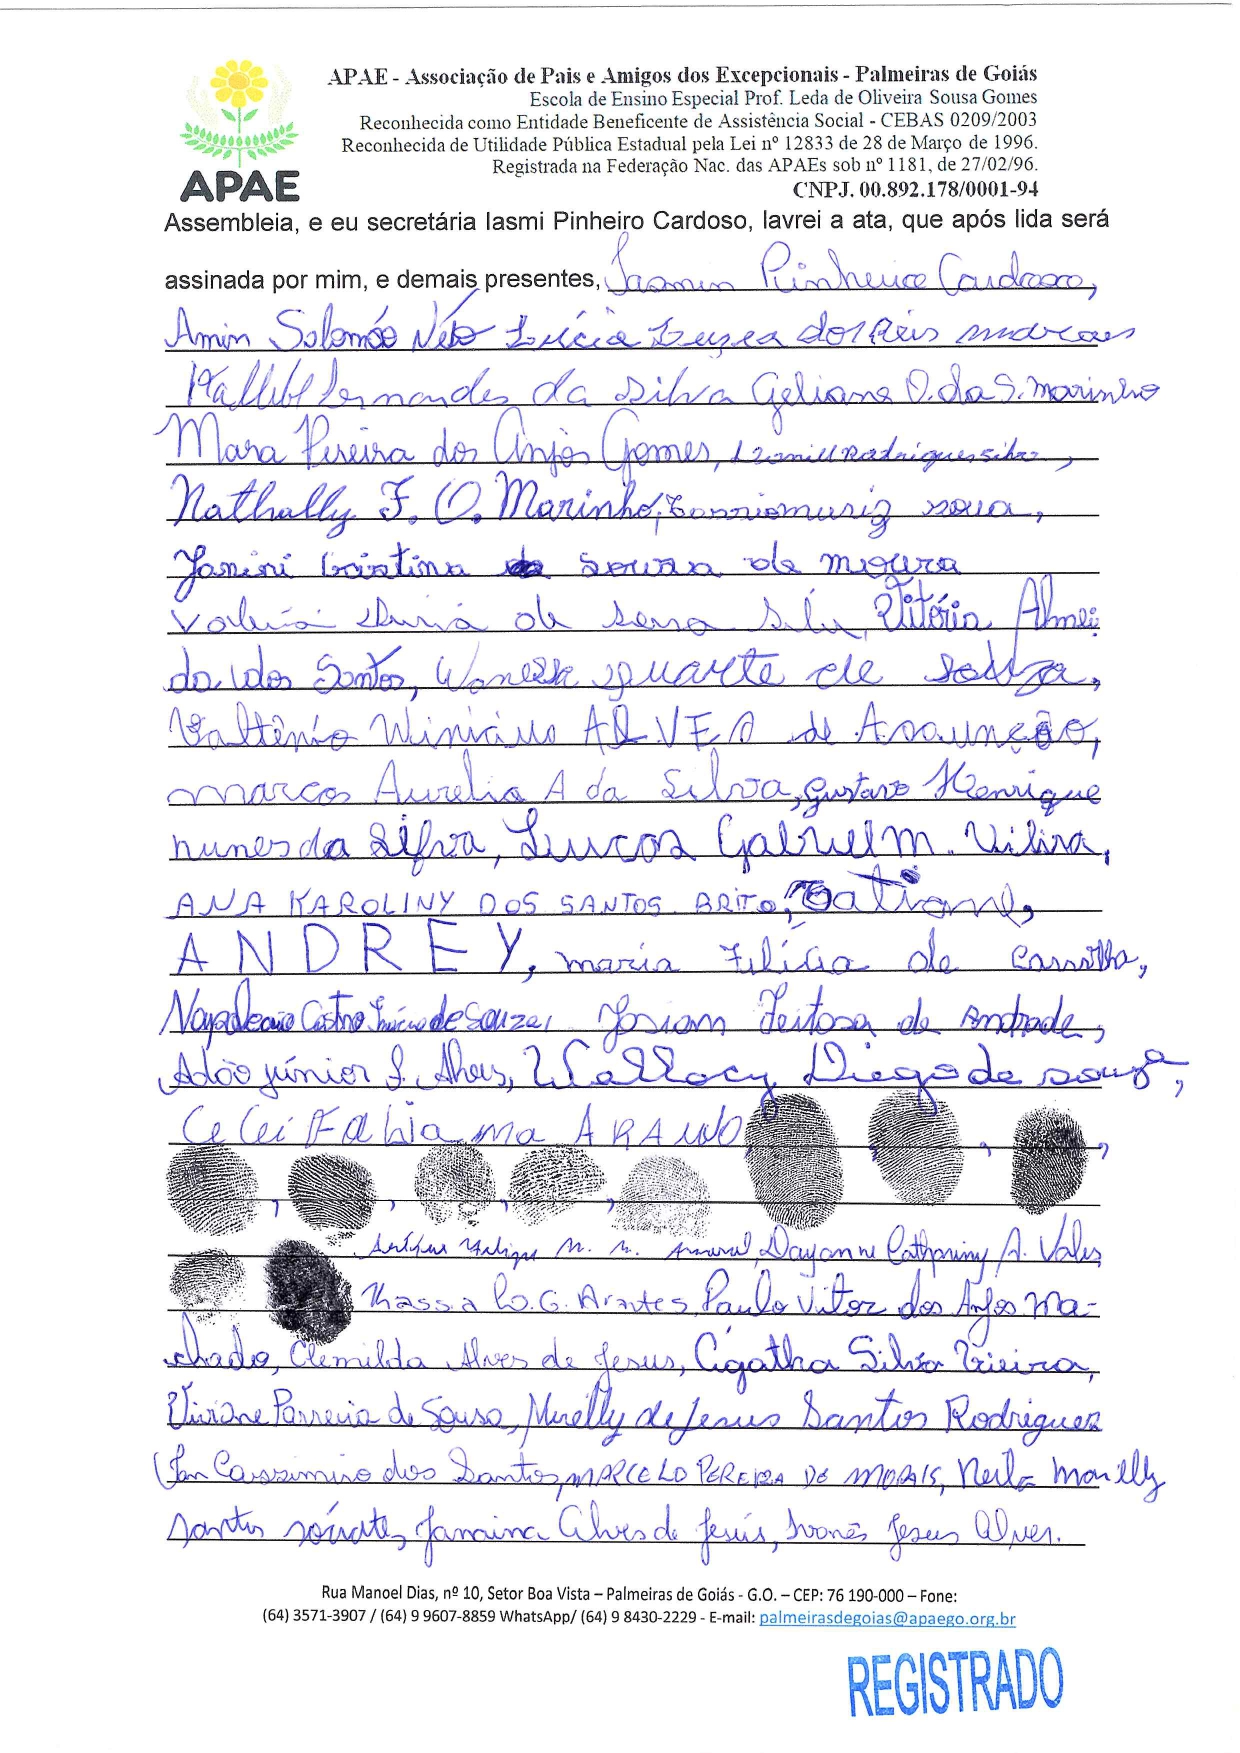 APAE - Associação de Pais e Amigos dos Excepcionais - Palmeiras de Goiás
Escola de Ensino Especial Prof. Leda de Oliveira Sousa Gomes
Reconhecida como Entidade Beneficente de Assistência Social - CEBAS 0209/2003
Reconhecida de Utilidade Pública Estadual pela Lei nº 12833 de 28 de Março de 1996.
Registrada na Federação Nac. das APAEs sob nº 1181, de 27/02/96.
CNPJ. 00.892.178/0001-94
APAE
Assembleia, e eu secretária Iasmi Pinheiro Cardoso, lavrei a ata, que após lida será
assinada por mim, e demais presentes, Iasmin Pinheiro Cardoso,
Amin Salomão Neto Lúcia Luzea dos Reis
Fernandes da Silva Geliane O. da S. Marinho
Mara Pereira dos Anjos Gomes, Rodrigues Silva,
Nathally F. O. Marinho,
de Moura
de Silva, Vitória Almei
da dos Santos, Wanessa Duarte de Souza,
Valtênio Winicius ALVES de Assunção,
Marcos Aurelio A da Silva, Gustavo Henrique
nunes da Silva, Lucas Gabriel M.
ANA KAROLINY DOS SANTOS BRITO, Tatiane,
ANDREY, maria Filícia de Carvalho,
Castro de Souza, Josiam Feitosa de Andrade,
Adão júnior Alves, Wallacy Diego de souza,
ARAUJO
M. M. Amaral, Dayanne Cathariny A. Vales
G. Arantes, Paulo Vitor dos Anjos Ma-
chado, Clemilda Alves de Jesus, Ágatha Silva Vieira,
Viviane Parreira de Sousa, Mirelly de Jesus Santos Rodrigues
Cassimiro dos Santos, MARCELO PEREIRA DE MORAIS, Marielly
santos Janaina Alves de Jesús, Ivanês Jesus Alves.
Rua Manoel Dias, nº 10, Setor Boa Vista – Palmeiras de Goiás - G.O. – CEP: 76 190-000 – Fone:
(64) 3571-3907 / (64) 9 9607-8859 WhatsApp/ (64) 9 8430-2229 - E-mail: palmeirasdegoias@apaego.org.br
REGISTRADO